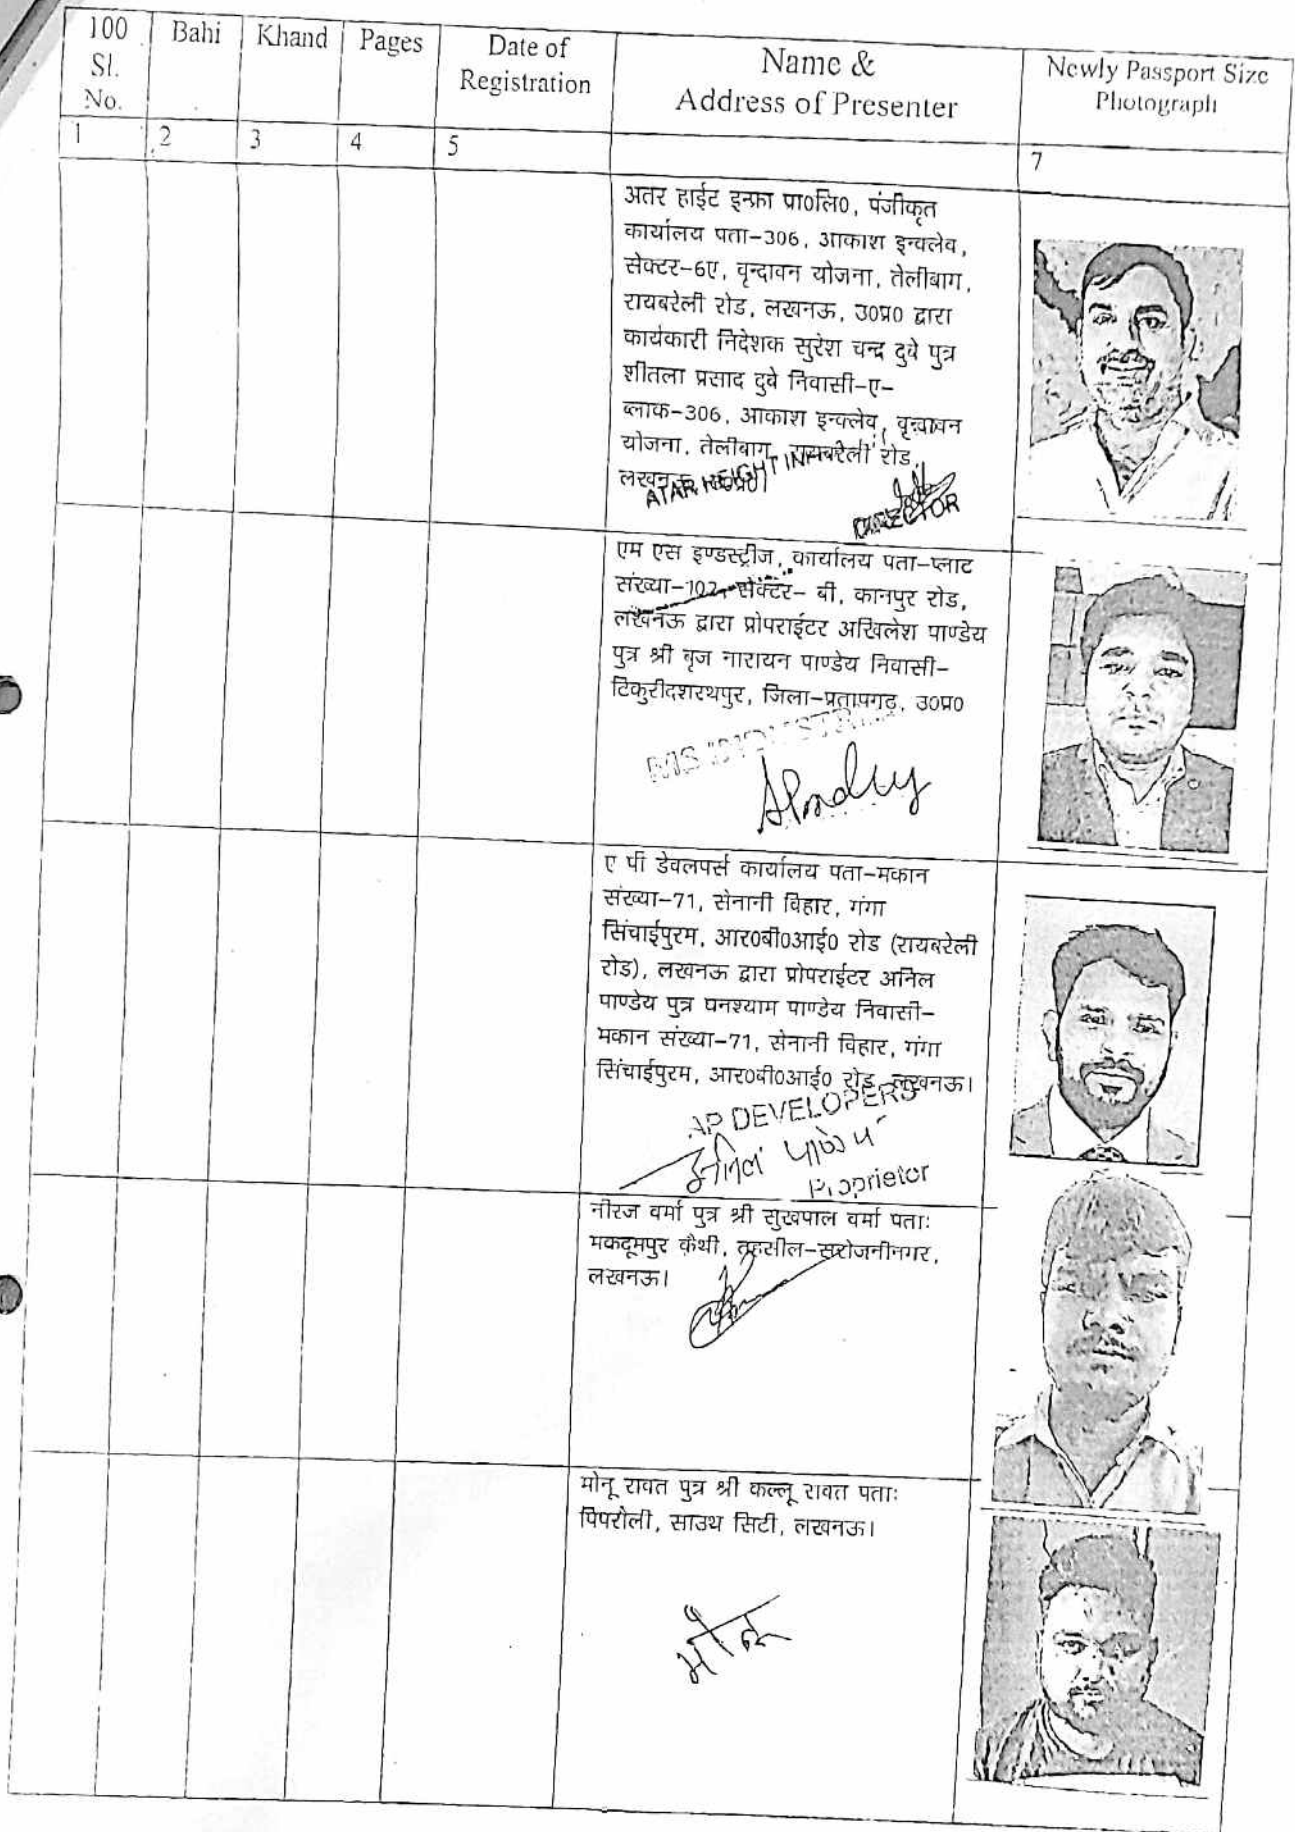 100 Sl. No.
Bahi
Khand
Pages
Date of Registration
Name & Address of Presenter
Newly Passport Size Photograph
1
2
3
4
5
7
अतर हाईट इन्फ्रा प्रा०लि०, पंजीकृत
कार्यालय पता-306, आकाश इन्क्लेव,
सेक्टर-6ए, वृन्दावन योजना, तेलीबाग,
रायबरेली रोड, लखनऊ, उ०प्र० द्वारा
कार्यकारी निदेशक सुरेश चन्द्र दुबे पुत्र
शीतला प्रसाद दुबे निवासी-ए-
ब्लाक-306, आकाश इन्क्लेव, वृन्दावन
योजना, तेलीबाग, रायबरेली रोड,
लखनऊ, उ०प्र०।
ATAR HEIGHT
DIRECTOR
एम एस इण्डस्ट्रीज, कार्यालय पता-प्लाट
संख्या-102, सेक्टर- बी, कानपुर रोड,
लखनऊ द्वारा प्रोपराईटर अखिलेश पाण्डेय
पुत्र श्री बृज नारायन पाण्डेय निवासी-
टिकुरीदशरथपुर, जिला-प्रतापगढ़, उ०प्र०
MS
ए पी डेवलपर्स कार्यालय पता-मकान
संख्या-71, सेनानी विहार, गंगा
सिंचाईपुरम, आर०बी०आई० रोड (रायबरेली
रोड), लखनऊ द्वारा प्रोपराईटर अनिल
पाण्डेय पुत्र घनश्याम पाण्डेय निवासी-
मकान संख्या-71, सेनानी विहार, गंगा
सिंचाईपुरम, आर०बी०आई० रोड, लखनऊ।
AP DEVELOPERS
अनिल पाण्डेय
Proprietor
नीरज वर्मा पुत्र श्री सुखपाल वर्मा पताः
मकदूमपुर कैथी, तहसील-सरोजनीनगर,
लखनऊ।
मोनू रावत पुत्र श्री कल्लू रावत पताः
पिपरौली, साउथ सिटी, लखनऊ।
मोनू